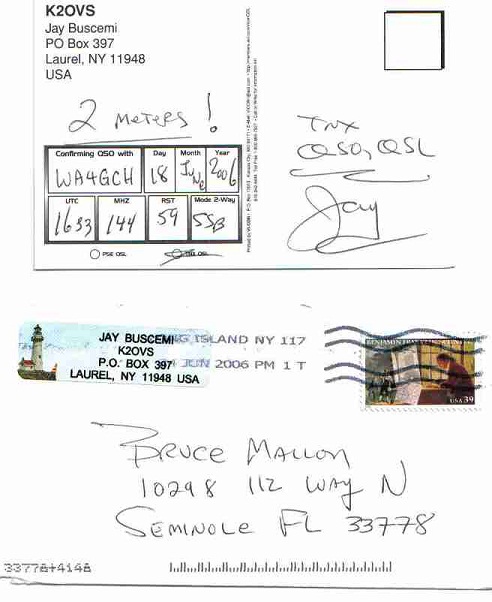 K2OVS
Jay Buscemi
PO Box 397
Laurel, NY 11948
USA
2 METERS!
Confirming QSO with Day Month Year
WA4GCH 18 June 2006
UTC MHZ RST Mode 2-Way
1633 144 59 SSB
PSE QSL
TNX
QSO, QSL
Jay
JAY BUSCEMI
K2OVS
P.O. BOX 397
LAUREL, NY 11948 USA
ISLAND NY 117
JUN 2006 PM 1 T
USA 39
BRUCE MALLON
10298 112 WAY N
SEMINOLE FL 33778
33778+4148